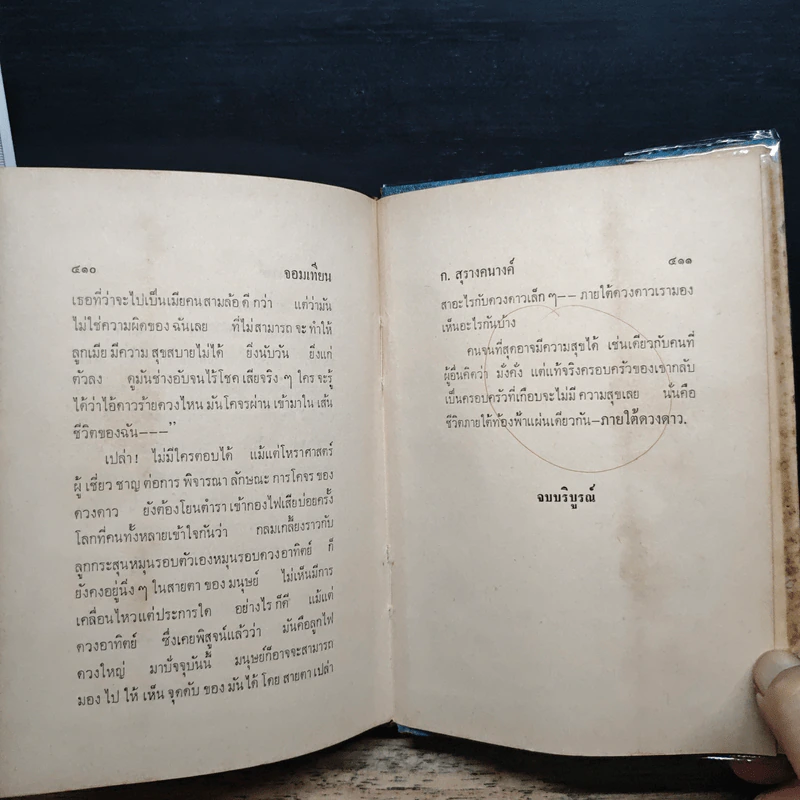 ๔๑๐ จอมเทียน
เธอที่ว่าจะไปเป็นเมียคนสามล้อ ดี กว่า แต่ว่ามัน
ไม่ใช่ความผิดของ ฉันเลย ที่ไม่ สามารถ จะ ทำให้
ลูกเมีย มี ความ สุขสบายไม่ได้ ยิ่งนับวัน ยิ่งแก่
ตัวลง ดูมันช่างอับจนไร้โชค เสียจริง ๆ ใคร จะรู้
ได้ว่าไอ้ดาวร้ายดวงไหน มัน โคจรผ่าน เข้ามาใน เส้น
ชีวิตของฉัน---”
เปล่า! ไม่มีใครตอบได้ แม้แต่โหราศาสตร์
ผู้ เชี่ยว ชาญ ต่อการ พิจารณา ลักษณะ การโคจร ของ
ดวงดาว ยังต้องโยนตำรา เข้ากองไฟเสียบ่อยครั้ง
โลกที่คนทั้งหลายเข้าใจกันว่า กลมเกลี้ยงราวกับ
ลูกกระสุนหมุนรอบตัวเองหมุนรอบดวงอาทิตย์ ก็
ยังคงอยู่นิ่ง ๆ ในสายตา ของ มนุษย์ ไม่เห็นมีการ
เคลื่อนไหวแต่ประการใด อย่างไร ก็ดี แม้แต่
ดวงอาทิตย์ ซึ่งเคยพิสูจน์แล้วว่า มันคือลูกไฟ
ดวงใหญ่ มาปัจจุบันนี้ มนุษย์ก็อาจจะสามารถ
มอง ไป ให้ เห็น จุดดับ ของ มัน ได้ โดย สายตา เปล่า
ก. สุรางคนางค์ ๔๑๑
สาอะไรกับดวงดาวเล็ก ๆ-- ภายใต้ดวงดาวเรามอง
เห็นอะไรกันบ้าง
คนจนที่สุดอาจมีความสุขได้ เช่นเดียวกับคนที่
ผู้อื่นคิดว่า มั่งคั่ง แต่แท้จริงครอบครัวของเขากลับ
เป็นครอบครัวที่เกือบจะไม่มี ความสุขเลย นั่นคือ
ชีวิตภายใต้ท้องฟ้าแผ่นเดียวกัน-ภายใต้ดวงดาว.
จบบริบูรณ์